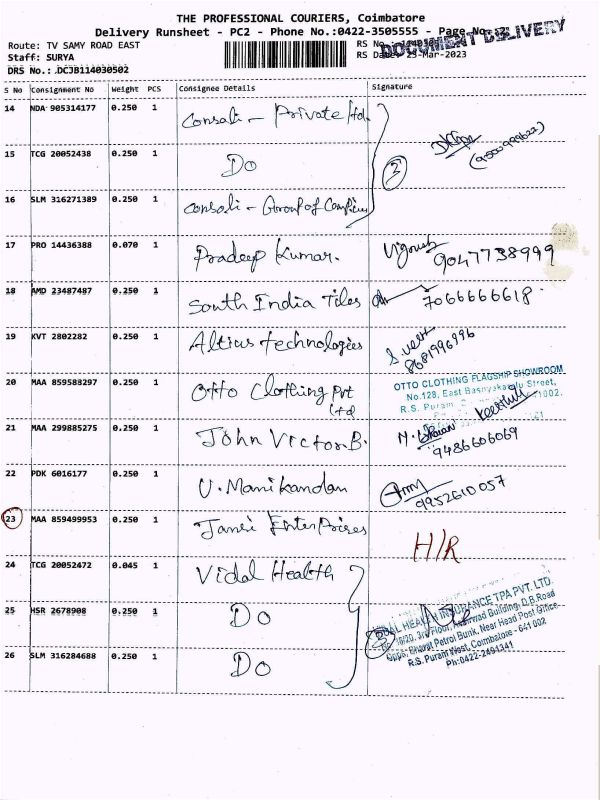 THE PROFESSIONAL COURIERS, Coimbatore
Delivery Runsheet - PC2 - Phone No.:0422-3505555 - Page No.:
DOCUMENT DELIVERY
Route: TV SAMY ROAD EAST
RS No.:
Staff: SURYA
RS Date: 25-Mar-2023
DRS No.: DCJB114030502
S No Consignment No Weight PCS Consignee Details Signature
14 NDA 905314177 0.250 1 Consali - Private Ltd.
15 TCG 20052438 0.250 1 Do
3
16 SLM 316271389 0.250 1 Consali - Group of Companies
17 PRO 14436388 0.070 1 Pradeep Kumar. 9047738999
18 AMD 23487487 0.250 1 South India Tiles 7066666618
19 KVT 2802282 0.250 1 Altius technologies 8681996996
20 MAA 859588297 0.250 1 Otto Clothing Pvt Ltd
OTTO CLOTHING FLAGSHIP SHOWROOM
No.128, East Street,
R.S. Puram 1002.
21 MAA 299885275 0.250 1 John Victor.B. 9486606069
22 PDK 6016177 0.250 1 U. Manikandan 9952610057
23 MAA 859499953 0.250 1 Enterprises H/R
24 TCG 20052472 0.045 1 Vidal Health
25 HSR 2678908 0.250 1 Do
26 SLM 316284688 0.250 1 Do
3
VIDAL HEALTH INSURANCE TPA PVT. LTD.
3rd Floor, Building, D.B.Road
Opp. Bharat Petrol Bunk, Near Head Post Office
R.S. Puram West, Coimbatore - 641 002
Ph:0422-2494341